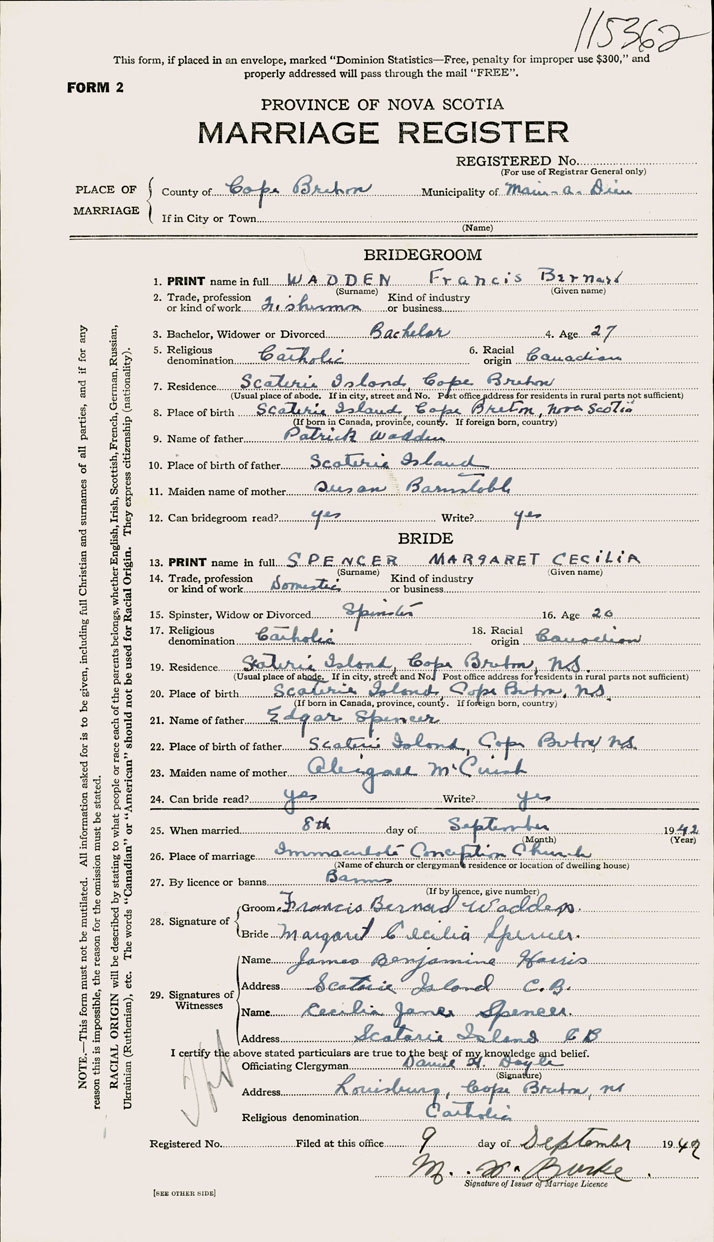 115362
This form, if placed in an envelope, marked "Dominion Statistics—Free, penalty for improper use $300," and
properly addressed will pass through the mail "FREE".
FORM 2
PROVINCE OF NOVA SCOTIA
MARRIAGE REGISTER
REGISTERED No.
(For use of Registrar General only)
PLACE OF MARRIAGE
County of Cape Breton Municipality of Main-a-Dieu
If in City or Town
(Name)
BRIDEGROOM
1. PRINT name in full WADDEN Francis Bernard
(Surname) (Given name)
2. Trade, profession or kind of work Fisherman Kind of industry or business
3. Bachelor, Widower or Divorced Bachelor 4. Age 27
5. Religious denomination Catholic 6. Racial origin Canadian
7. Residence Scaterie Island, Cape Breton
(Usual place of abode. If in city, street and No. Post office address for residents in rural parts not sufficient)
8. Place of birth Scaterie Island, Cape Breton, Nova Scotia
(If born in Canada, province, county. If foreign born, country)
9. Name of father Patrick Wadden
10. Place of birth of father Scaterie Island
11. Maiden name of mother Susan
12. Can bridegroom read? yes Write? yes
BRIDE
13. PRINT name in full SPENCER MARGARET CECILIA
(Surname) (Given name)
14. Trade, profession or kind of work Domestic Kind of industry or business
15. Spinster, Widow or Divorced Spinster 16. Age 20
17. Religious denomination Catholic 18. Racial origin Canadian
19. Residence Scaterie Island, Cape Breton, N.S.
(Usual place of abode. If in city, street and No. Post office address for residents in rural parts not sufficient)
20. Place of birth Scaterie Island, Cape Breton, N.S.
(If born in Canada, province, county. If foreign born, country)
21. Name of father Edgar Spencer
22. Place of birth of father Scaterie Island, Cape Breton, N.S.
23. Maiden name of mother Abigail
24. Can bride read? yes Write? yes
25. When married 8th day of September 1942
(Month) (Year)
26. Place of marriage Immaculate Conception Church
(Name of church or clergyman's residence or location of dwelling house)
27. By licence or banns Banns
(If by licence, give number)
28. Signature of
Groom Francis Bernard Wadden.
Bride Margaret Cecilia Spencer.
29. Signatures of Witnesses
Name James Benjamine Harris
Address Scatarie Island C.B.
Name Cecilia Jane Spencer.
Address Scatarie Island CB
I certify the above stated particulars are true to the best of my knowledge and belief.
Officiating Clergyman Daniel H. Doyle
(Signature)
Address Louisburg, Cape Breton, NS
Religious denomination Catholic
Registered No. Filed at this office 9 day of September 1942
Burke.
Signature of Issuer of Marriage Licence
[SEE OTHER SIDE]
NOTE.—This form must not be mutilated. All information asked for is to be given, including full Christian and surnames of all parties, and if for any
reason this is impossible, the reason for the omission must be stated.
RACIAL ORIGIN will be described by stating to what people or race each of the parents belongs, whether English, Irish, Scottish, French, German, Russian,
Ukrainian (Ruthenian), etc. The words "Canadian" or "American" should not be used for Racial Origin. They express citizenship (nationality).